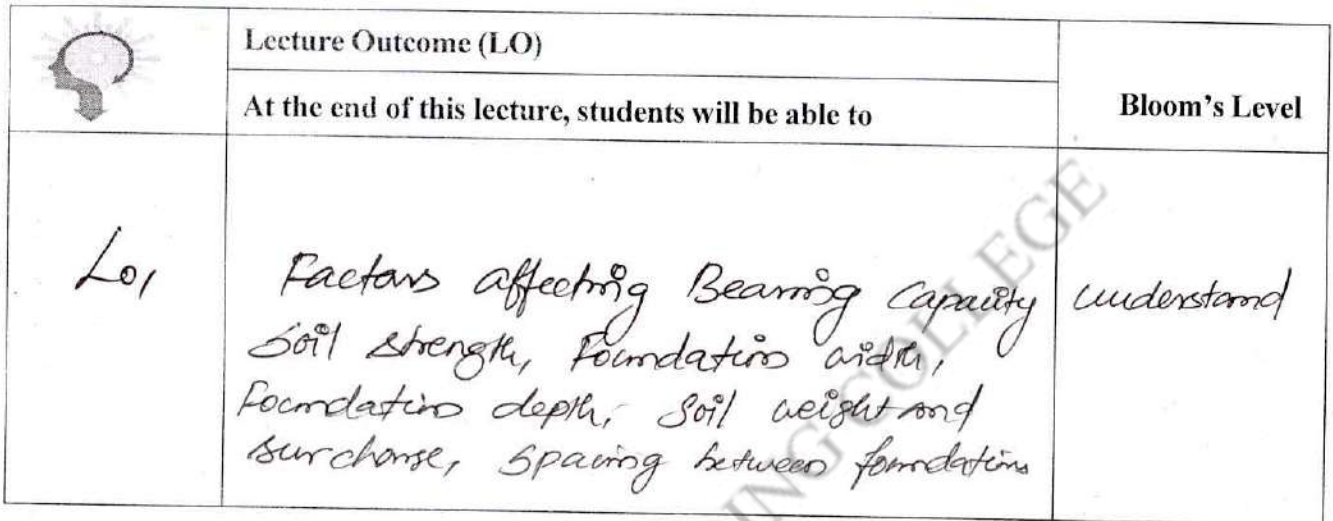 Lecture Outcome (LO)
At the end of this lecture, students will be able to
Bloom's Level
LO1
Factors affecting Bearing Capacity
Soil strength, Foundation width,
Foundation depth, Soil weight and
surcharge, Spacing between foundations
understand
ING COLLEGE